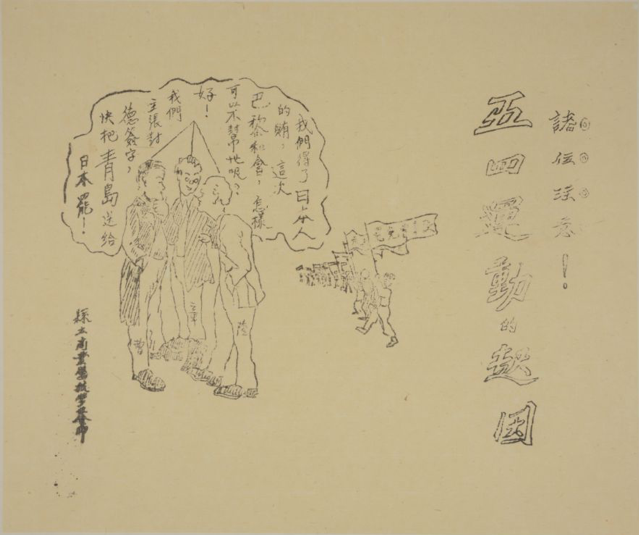 諸位注意！
五四運動的起因
我們得了日本人
的賄，這次
巴黎和會，怎樣
可以不幫他呢？
好！
我們
主張對
德簽字，
快把青島送給
日本罷！
陸
章
曹